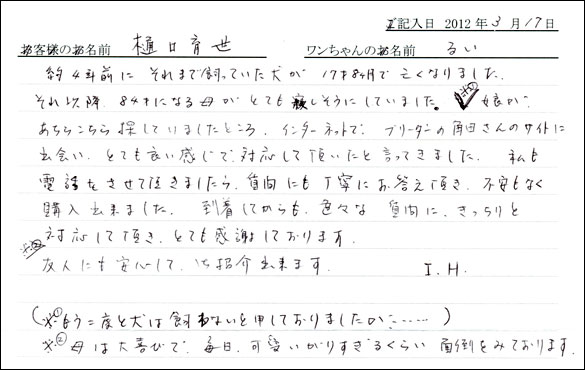 ご記入日 2012年3月17日
お客様のお名前 樋口育世 ワンちゃんのお名前 るい
約4年前に それまで飼っていた犬が 17才8ヶ月で 亡くなりました。
それ以降、84才になる母が とても寂しそうにしていました。※① 娘が、
あちらこちら探していましたところ、インターネットで、ブリーダーの角田さんのサイトに
出会い、とても良い感じで対応して頂いたと言ってきました。 私も
電話をさせて頂きましたら、質問にも丁寧にお答え頂き、不安もなく
購入出来ました。 到着してからも、色々な 質問に、きっちりと
対応して頂き、とても感謝しております。
※② 友人にも安心して、ご紹介出来ます。 I.H.
(※①もう二度と犬は飼わないと申しておりましたが……)
※②母は大喜びで、毎日、可愛いがりすぎるくらい 面倒をみております。